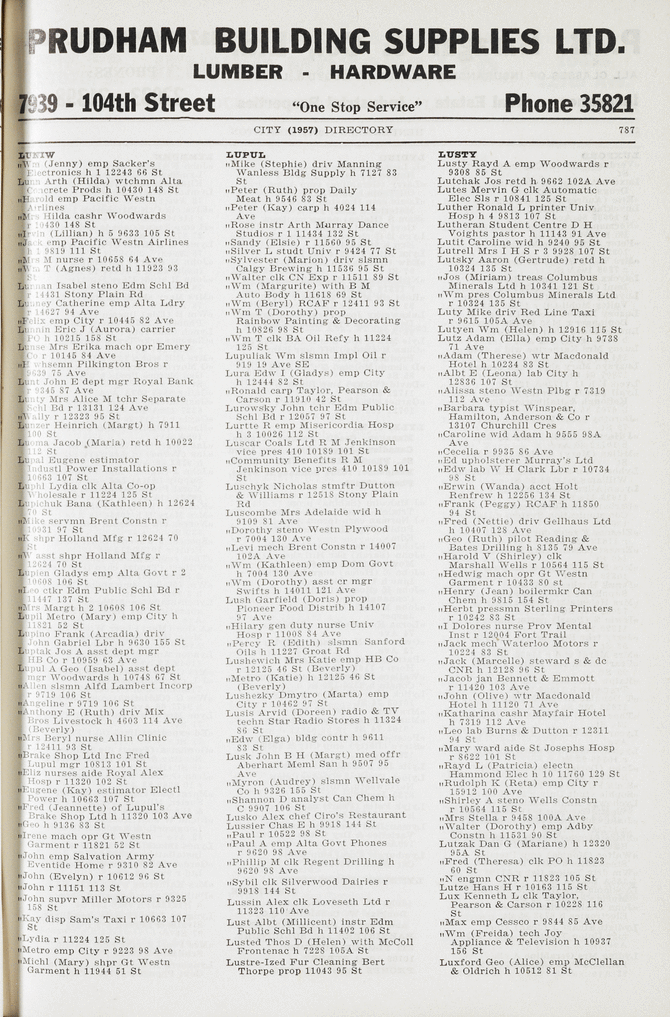 PRUDHAM BUILDING SUPPLIES LTD.
LUMBER - HARDWARE
7939 - 104th Street "One Stop Service" Phone 35821
CITY (1957) DIRECTORY 787
LUNIW
"Wm (Jenny) emp Sacker's
Electronics h 1 12243 66 St
Lunn Arth (Hilda) wtchmn Alta
Concrete Prods h 10430 148 St
"Harold emp Pacific Westn
Airlines
"Mrs Hilda cashr Woodwards
r 10430 148 St
"Irvin (Lillian) h 5 9633 105 St
"Jack emp Pacific Westn Airlines
h 1 9819 111 St
"Mrs M nurse r 10658 64 Ave
"Wm T (Agnes) retd h 11923 93
St
Lunnan Isabel steno Edm Schl Bd
r 14431 Stony Plain Rd
Lunney Catherine emp Alta Ldry
r 14627 94 Ave
"Felix emp City r 10445 82 Ave
Lunnin Eric J (Aurora) carrier
PO h 10215 158 St
Lunse Mrs Erika mach opr Emery
Co r 10145 84 Ave
"H whsemn Pilkington Bros r
9639 75 Ave
Lunt John E dept mgr Royal Bank
r 9345 87 Ave
Lunty Mrs Alice M tchr Separate
Schl Bd r 13131 124 Ave
"Wally r 12323 95 St
Lunzer Heinrich (Margt) h 7911
100 St
Luoma Jacob (Maria) retd h 10022
112 St
Lupal Eugene estimator
Industl Power Installations r
10663 107 St
Luphl Lydia clk Alta Co-op
Wholesale r 11224 125 St
Lupichuk Bana (Kathleen) h 12624
70 St
"Mike servmn Brent Constn r
10931 97 St
"K shpr Holland Mfg r 12624 70
St
"W asst shpr Holland Mfg r
12624 70 St
Lupien Gladys emp Alta Govt r 2
10608 106 St
"Leo ctkr Edm Public Schl Bd r
11447 137 St
"Mrs Margt h 2 10608 106 St
Lupil Metro (Mary) emp City h
11821 52 St
Lupino Frank (Arcadia) driv
John Gabriel Lbr h 9630 155 St
Luptak Jos A asst dept mgr
HB Co r 10959 63 Ave
Lupul A Geo (Isabel) asst dept
mgr Woodwards h 10748 67 St
"Allen slsmn Alfd Lambert Incorp
r 9719 106 St
"Angeline r 9719 106 St
"Anthony E (Ruth) driv Mix
Bros Livestock h 4603 114 Ave
(Beverly)
"Mrs Beryl nurse Allin Clinic
r 12411 93 St
"Brake Shop Ltd Inc Fred
Lupul mgr 10813 101 St
"Eliz nurses aide Royal Alex
Hosp r 11320 102 St
"Eugene (Kay) estimator Electl
Power h 10663 107 St
"Fred (Jeannette) of Lupul's
Brake Shop Ltd h 11320 103 Ave
"Geo h 9136 83 St
"Irene mach opr Gt Westn
Garment r 11821 52 St
"John emp Salvation Army
Eventide Home r 9310 82 Ave
"John (Evelyn) r 10612 96 St
"John r 11151 113 St
"John supvr Miller Motors r 9325
158 St
"Kay disp Sam's Taxi r 10663 107
St
"Lydia r 11224 125 St
"Metro emp City r 9223 98 Ave
"Michl (Mary) shpr Gt Westn
Garment h 11944 51 St
LUPUL
"Mike (Stephie) driv Manning
Wanless Bldg Supply h 7127 83
St
"Peter (Ruth) prop Daily
Meat h 9546 83 St
"Peter (Kay) carp h 4024 114
Ave
"Rose instr Arth Murray Dance
Studios r 1 11434 132 St
"Sandy (Elsie) r 11560 95 St
"Silver L studt Univ r 9424 77 St
"Sylvester (Marion) driv slsmn
Calgy Brewing h 11536 95 St
"Walter clk CN Exp r 11511 89 St
"Wm (Margurite) with B M
Auto Body h 11618 69 St
"Wm (Beryl) RCAF r 12411 93 St
"Wm T (Dorothy) prop
Rainbow Painting & Decorating
h 10826 98 St
"Wm T clk BA Oil Refy h 11224
125 St
Lupuliak Wm slsmn Impl Oil r
919 19 Ave SE
Lura Edw I (Gladys) emp City
h 12444 82 St
"Ronald carp Taylor, Pearson &
Carson r 11910 42 St
Lurowsky John tchr Edm Public
Schl Bd r 12057 97 St
Lurtte R emp Misericordia Hosp
h 3 10026 112 St
Luscar Coals Ltd R M Jenkinson
vice pres 410 10189 101 St
"Community Benefits R M
Jenkinson vice pres 410 10189 101
St
Luschyk Nicholas stmftr Dutton
& Williams r 12518 Stony Plain
Rd
Luscombe Mrs Adelaide wid h
9109 81 Ave
"Dorothy steno Westn Plywood
r 7004 130 Ave
"Levi mech Brent Constn r 14007
102A Ave
"Wm (Kathleen) emp Dom Govt
h 7004 130 Ave
"Wm (Dorothy) asst cr mgr
Swifts h 14011 121 Ave
Lush Garfield (Doris) prop
Pioneer Food Distrib h 14107
97 Ave
"Hilary gen duty nurse Univ
Hosp r 11008 84 Ave
"Percy R (Edith) slsmn Sanford
Oils h 11227 Groat Rd
Lushewich Mrs Katie emp HB Co
r 12125 46 St (Beverly)
"Metro (Katie) h 12125 46 St
(Beverly)
Lushezky Dmytro (Marta) emp
City r 10462 97 St
Lusis Arvid (Doreen) radio & TV
techn Star Radio Stores h 11324
86 St
"Edw (Elga) bldg contr h 9611
83 St
Lusk John B H (Margt) med offr
Aberhart Meml San h 9507 95
Ave
"Myron (Audrey) slsmn Wellvale
Co h 9326 155 St
"Shannon D analyst Can Chem h
C 9907 106 St
Lusko Alex chef Ciro's Restaurant
Lussier Chas E h 9918 144 St
"Paul r 10522 98 St
"Paul A emp Alta Govt Phones
r 9620 98 Ave
"Phillip M clk Regent Drilling h
9620 98 Ave
"Sybil clk Silverwood Dairies r
9918 144 St
Lussin Alex clk Loveseth Ltd r
11323 110 Ave
Lust Albt (Millicent) instr Edm
Public Schl Bd h 11402 106 St
Lusted Thos D (Helen) with McColl
Frontenac h 7228 105A St
Lustre-Ized Fur Cleaning Bert
Thorpe prop 11043 95 St
LUSTY
Lusty Rayd A emp Woodwards r
9308 85 St
Lutchak Jos retd h 9662 102A Ave
Lutes Mervin G clk Automatic
Elec Sls r 10841 125 St
Luther Ronald L printer Univ
Hosp h 4 9813 107 St
Lutheran Student Centre D H
Voights pastor h 11143 91 Ave
Lutit Caroline wid h 9240 95 St
Lutrell Mrs I H S r 3 9928 107 St
Lutsky Aaron (Gertrude) retd h
10324 135 St
"Jos (Miriam) treas Columbus
Minerals Ltd h 10341 121 St
"Wm pres Columbus Minerals Ltd
r 10324 135 St
Luty Mike driv Red Line Taxi
r 9615 105A Ave
Lutyen Wm (Helen) h 12916 115 St
Lutz Adam (Ella) emp City h 9738
71 Ave
"Adam (Therese) wtr Macdonald
Hotel h 10234 83 St
"Albt E (Leona) lab City h
12836 107 St
"Alissa steno Westn Plbg r 7319
112 Ave
"Barbara typist Winspear,
Hamilton, Anderson & Co r
13107 Churchill Cres
"Caroline wid Adam h 9555 98A
Ave
"Cecelia r 9935 86 Ave
"Ed upholsterer Murray's Ltd
"Edw lab W H Clark Lbr r 10734
98 St
"Erwin (Wanda) acct Holt
Renfrew h 12256 134 St
"Frank (Peggy) RCAF h 11850
94 St
"Fred (Nettie) driv Gellhaus Ltd
h 10407 128 Ave
"Geo (Ruth) pilot Reading &
Bates Drilling h 8135 79 Ave
"Harold V (Shirley) clk
Marshall Wells r 10564 115 St
"Hedwig mach opr Gt Westn
Garment r 10433 80 st
"Henry (Jean) boilermkr Can
Chem h 9815 154 St
"Herbt pressmn Sterling Printers
r 10242 83 St
"I Dolores nurse Prov Mental
Inst r 12004 Fort Trail
"Jack mech Waterloo Motors r
10224 83 St
"Jack (Marcelle) steward s & dc
CNR h 12128 96 St
"Jacob jan Bennett & Emmott
r 11420 103 Ave
"John (Olive) wtr Macdonald
Hotel h 11120 71 Ave
"Katharina cashr Mayfair Hotel
h 7319 112 Ave
"Leo lab Burns & Dutton r 12311
94 St
"Mary ward aide St Josephs Hosp
r 8622 101 St
"Rayd L (Patricia) electn
Hammond Elec h 10 11760 129 St
"Rudolph K (Reta) emp City r
15912 100 Ave
"Shirley A steno Wells Constn
r 10564 115 St
"Mrs Stella r 9458 100A Ave
"Walter (Dorothy) emp Adby
Constn h 11531 90 St
Lutzak Dan G (Mariane) h 12320
95A St
"Fred (Theresa) clk PO h 11823
60 St
"N engmn CNR r 11823 105 St
Lutze Hans H r 10163 115 St
Lux Kenneth L clk Taylor,
Pearson & Carson r 10228 116
St
"Max emp Cessco r 9844 85 Ave
"Wm (Freida) tech Joy
Appliance & Television h 10937
156 St
Luxford Geo (Alice) emp McClellan
& Oldrich h 10512 81 St